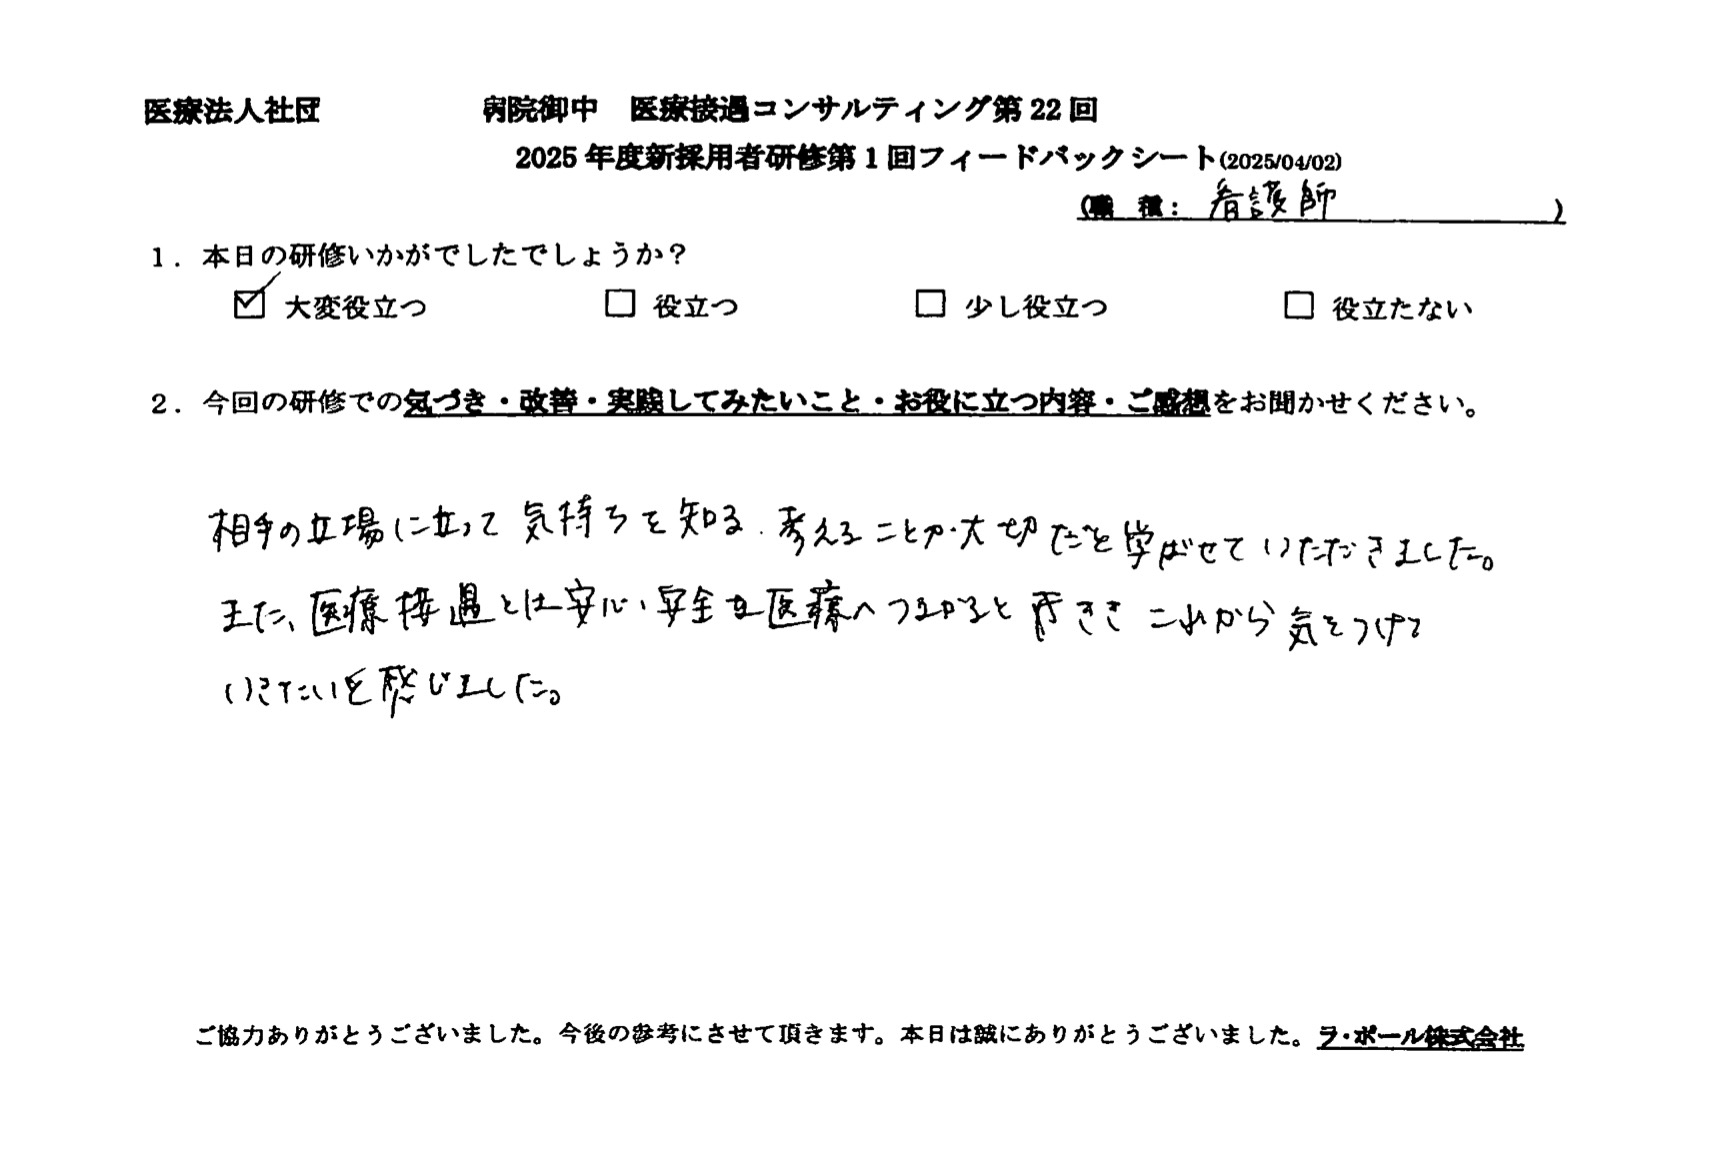 医療法人社団 病院御中 医療接遇コンサルティング第22回
2025年度新採用者研修第1回フィードバックシート(2025/04/02)
(職 種: 看護師 )
1. 本日の研修いかがでしたでしょうか?
☑ 大変役立つ □ 役立つ □ 少し役立つ □ 役立たない
2. 今回の研修での気づき・改善・実践してみたいこと・お役に立つ内容・ご感想をお聞かせください。
相手の立場に立って気持ちを知る、考えることが大切だと学ばせていただきました。
また、医療接遇とは安心・安全な医療へつながると聞き これから気をつけて
いきたいと感じました。
ご協力ありがとうございました。今後の参考にさせて頂きます。本日は誠にありがとうございました。ラ・ポール株式会社